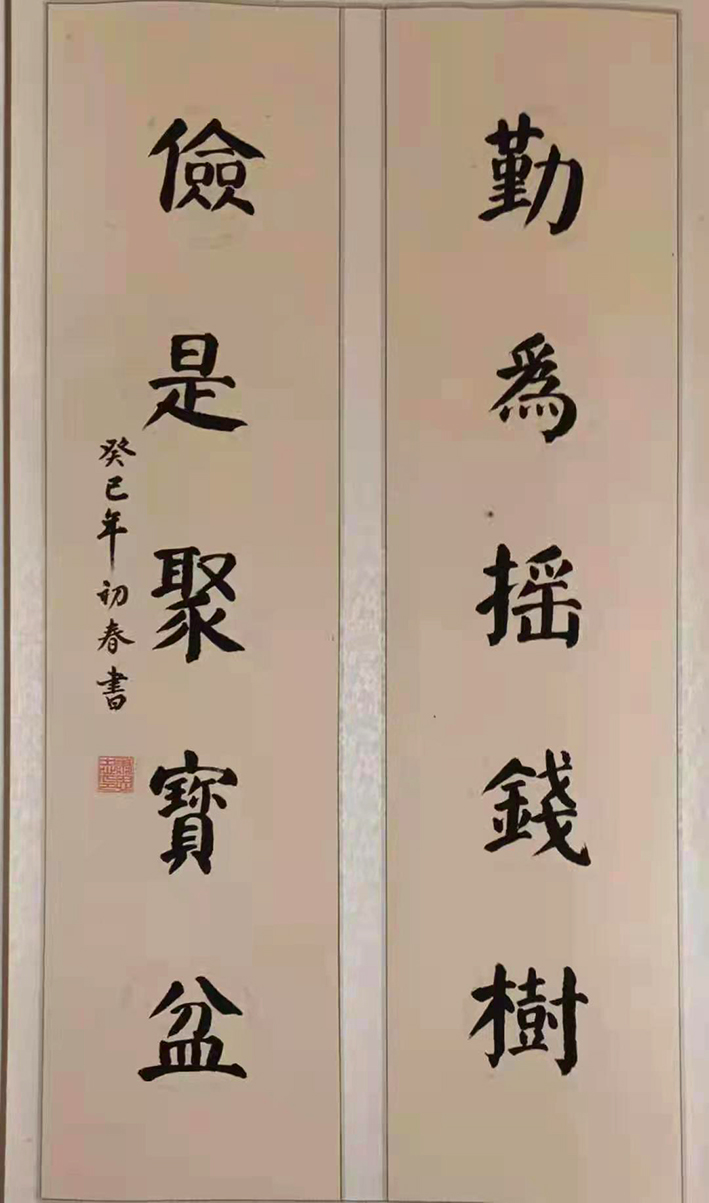 勤為摇錢樹
儉是聚寶盆
癸已年初春書